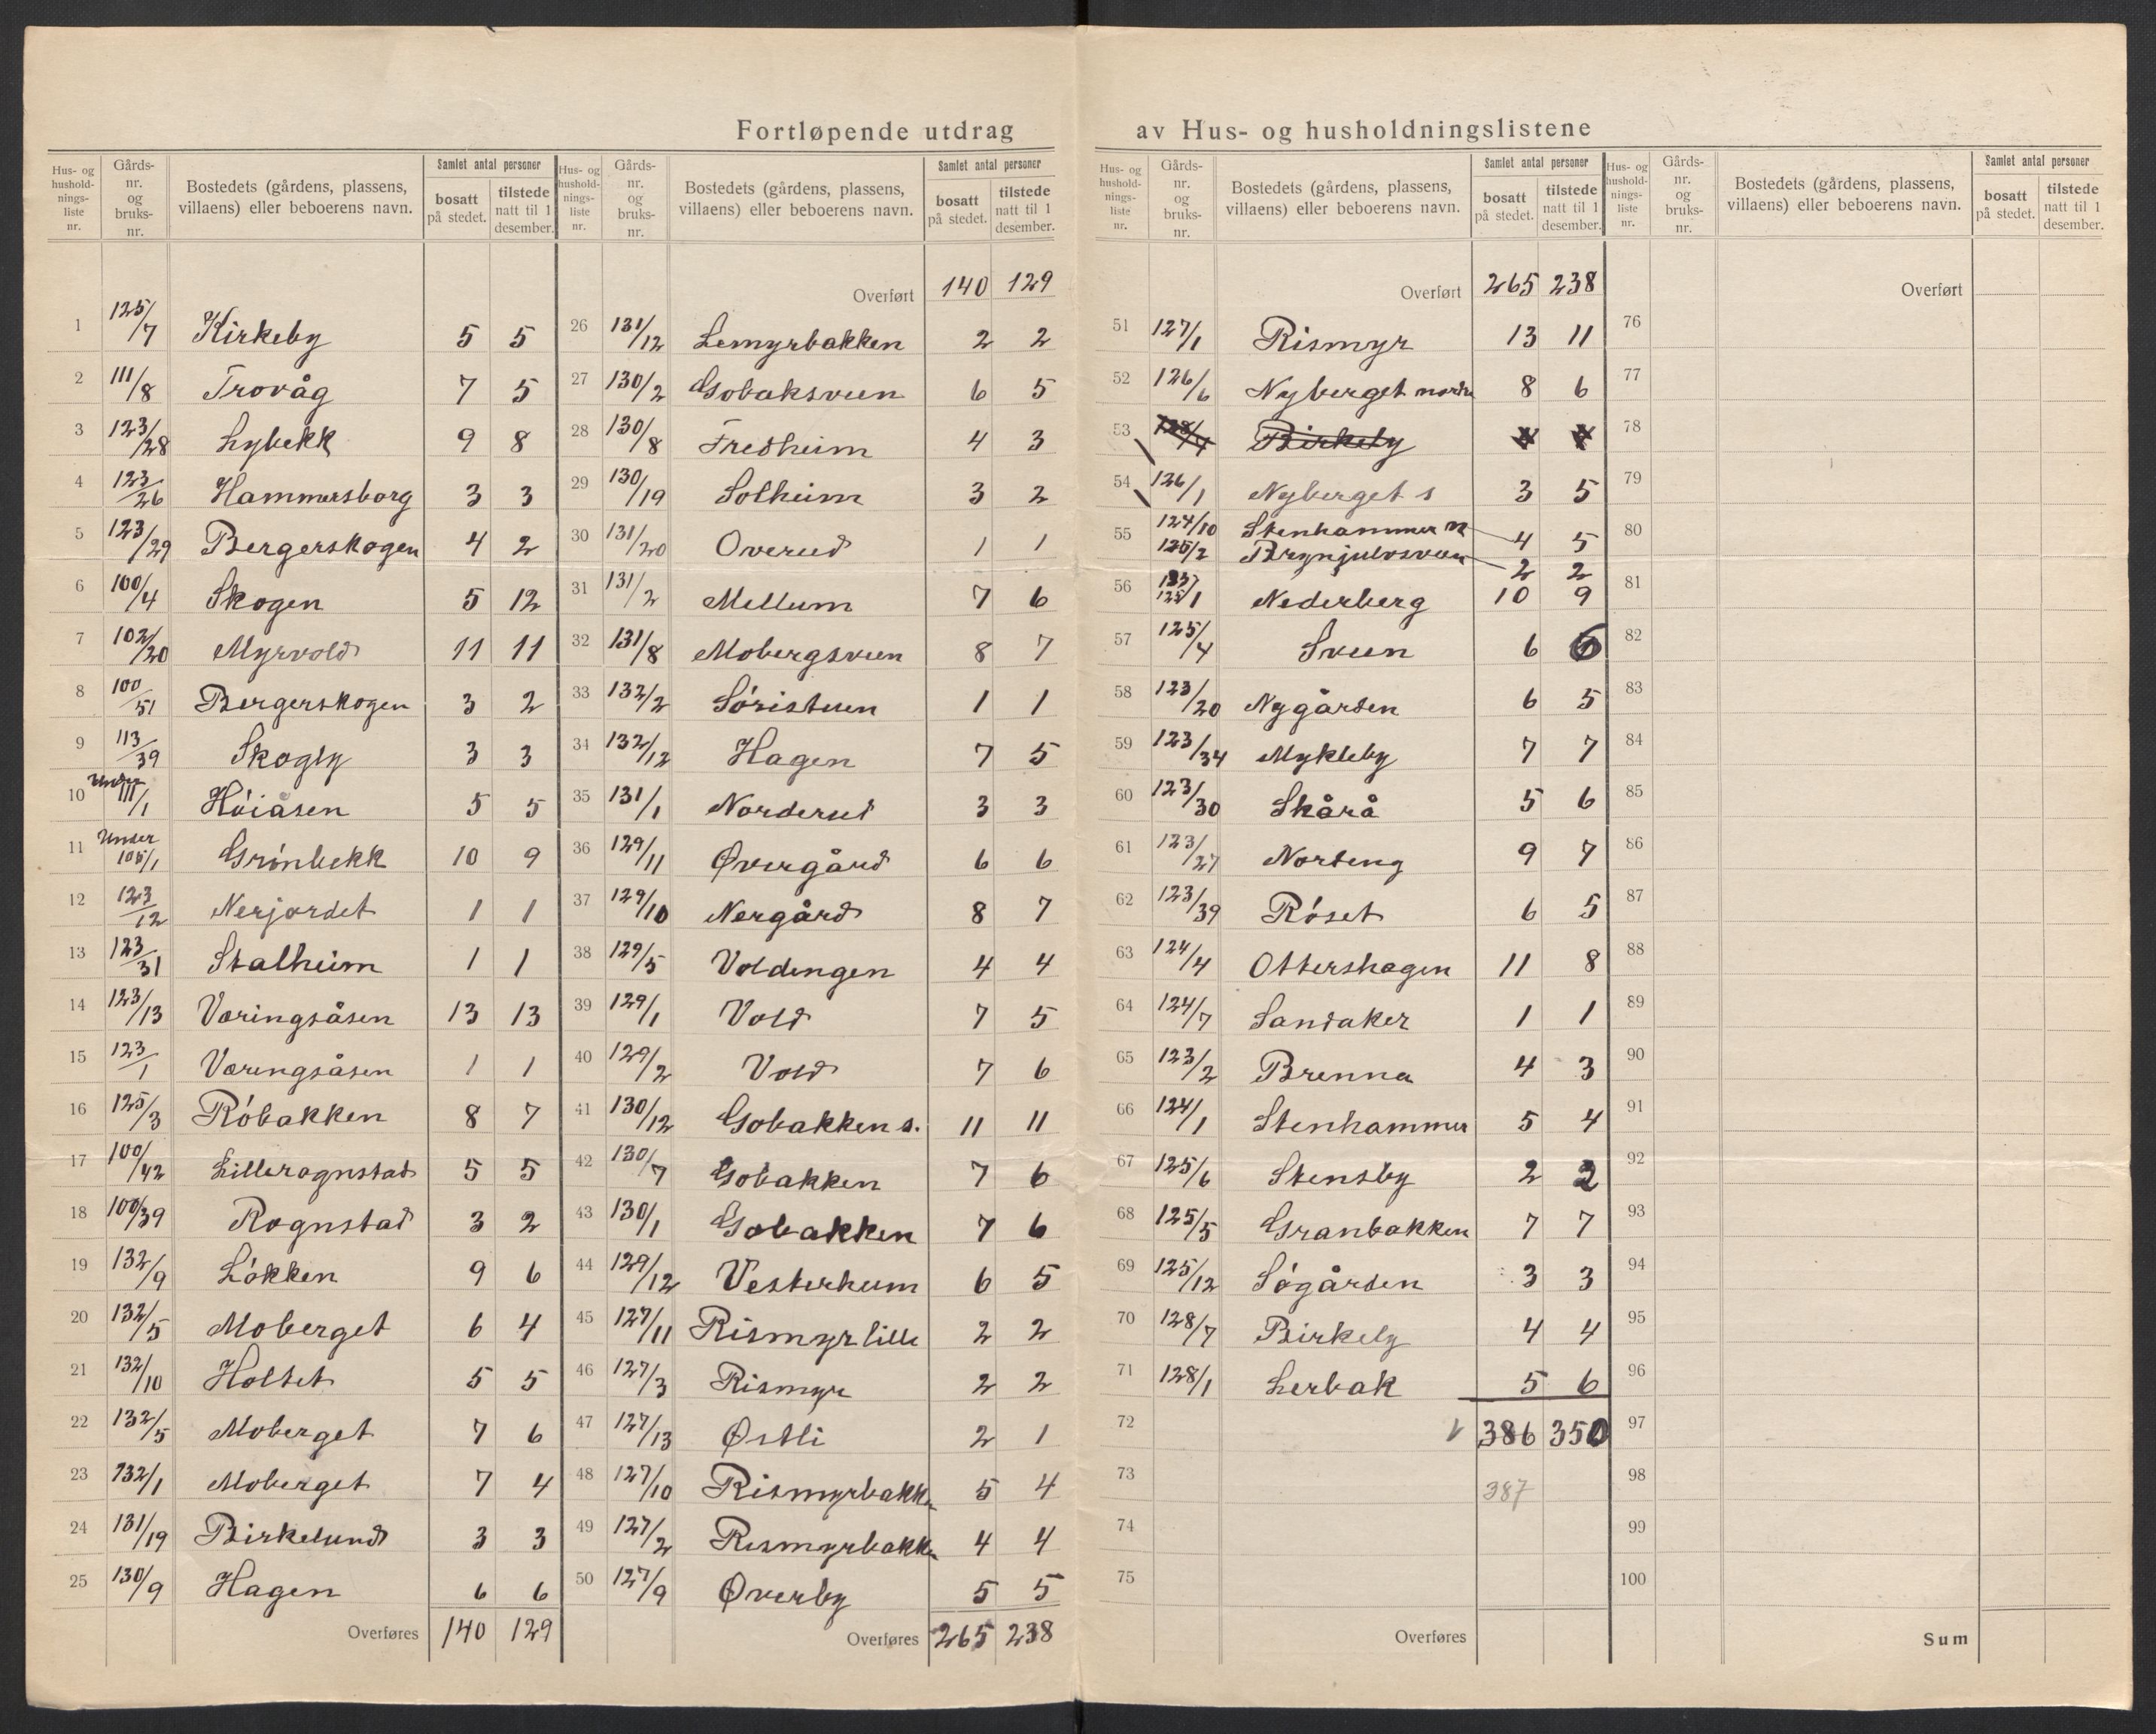 Fortløpende utdrag av Hus- og husholdningslistene
Hus- og husholdningsliste nr. | Gårds- nr. og bruks- nr. | Bostedets (gårdens, plassens, villaens) eller beboerens navn. | Samlet antal personer bosatt på stedet. | tilstede natt til 1 desember.
1 125/7 Kirkeby 5 5
2 111/8 Trovåg 7 5
3 123/28 Lybekk 9 8
4 123/26 Hammersborg 3 3
5 123/29 Bergerskogen 4 2
6 100/4 Skogen 5 12
7 102/20 Myrvold 11 11
8 100/51 Bergerskogen 3 2
9 113/39 Skogly 3 3
10 Under 111/1 Höiåsen 5 5
11 Under 105/1 Grönbekk 10 9
12 123/12 Nerjordet 1 1
13 123/31 Stalheim 1 1
14 123/13 Væringsåsen 13 13
15 123/1 Væringsåsen 1 1
16 125/3 Röbakken 8 7
17 100/42 Lillerognstad 5 5
18 100/39 Rognstad 3 2
19 132/9 Lökken 9 6
20 132/5 Moberget 6 4
21 132/10 Holtet 5 5
22 132/5 Moberget 7 6
23 132/1 Moberget 7 4
24 131/19 Birkelund 3 3
25 130/9 Hagen 6 6
Overføres 140 129
Hus- og husholdningsliste nr. | Gårds- nr. og bruks- nr. | Bostedets (gårdens, plassens, villaens) eller beboerens navn. | Samlet antal personer bosatt på stedet. | tilstede natt til 1 desember.
Overført 140 129
26 131/12 Lemyrbakken 2 2
27 130/2 Gobaksveen 6 5
28 130/8 Fredheim 4 3
29 130/19 Solheim 3 2
30 131/20 Overud 1 1
31 131/2 Mellum 7 6
32 131/8 Mobergsveen 8 7
33 132/2 Söristuen 1 1
34 132/12 Hagen 7 5
35 131/1 Norderud 3 3
36 129/11 Øvergård 6 6
37 129/10 Nergård 8 7
38 129/5 Voldengen 4 4
39 129/1 Vold 7 5
40 129/2 Vold 7 6
41 130/12 Gobakken s. 11 11
42 130/7 Gobakken 7 6
43 130/1 Gobakken 7 6
44 129/12 Vesterheim 6 5
45 127/11 Rismyr lille 2 2
46 127/3 Rismyr 2 2
47 127/13 Østli 2 1
48 127/10 Rismyrbakken 5 4
49 127/2 Rismyrbakken 4 4
50 127/9 Øverby 5 5
Overføres 265 238
Hus- og husholdningsliste nr. | Gårds- nr. og bruks- nr. | Bostedets (gårdens, plassens, villaens) eller beboerens navn. | Samlet antal personer bosatt på stedet. | tilstede natt til 1 desember.
Overført 265 238
51 127/1 Rismyr 13 11
52 126/6 Nyberget nordre 8 6
53 Birkely
54 126/1 Nyberget s 3 5
55 124/10 Stenhammer n 4 5
125/2 Brynjulvsveen 2 2
56 125/1 Nederberg 10 9
57 125/4 Sveen 6 6
58 123/20 Nygården 6 5
59 123/34 Mykleby 7 7
60 123/30 Skårå 5 6
61 123/27 Nordeng 9 7
62 123/39 Röset 6 5
63 124/4 Ottershagen 11 8
64 124/7 Sandaker 1 1
65 123/2 Brenna 4 3
66 124/1 Stenhammer 5 4
67 125/6 Stensby 2 2
68 125/5 Granbakken 7 7
69 125/12 Sögården 3 3
70 128/7 Birkely 4 4
71 128/1 Lerbak 5 6
72 386 350
73 387
74
75
Overføres
Hus- og husholdningsliste nr. | Gårds- nr. og bruks- nr. | Bostedets (gårdens, plassens, villaens) eller beboerens navn. | Samlet antal personer bosatt på stedet. | tilstede natt til 1 desember.
Overført
76
77
78
79
80
81
82
83
84
85
86
87
88
89
90
91
92
93
94
95
96
97
98
99
100
Sum